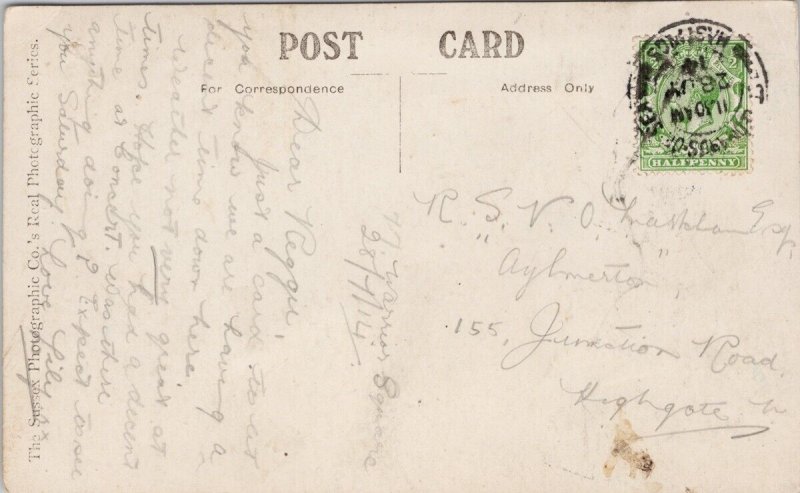 POST CARD
For Correspondence
Address Only
The Sussex Photographic Co.'s Real Photographic Series.
HALFPENNY
11.40 AM
28 JY
14
77 Warrior Square
28/7/14.
Dear Reggie,
Just a card to let
you know we are having a
decent time down here.
Weather not very great at
times. Hope you had a decent
time at Concert. Was there
anything doing? Expect to see
you Saturday. Love Lily xx
R. S. V. O. Esq.
" "
Aylmerton,
155, Junction Road,
Highgate N